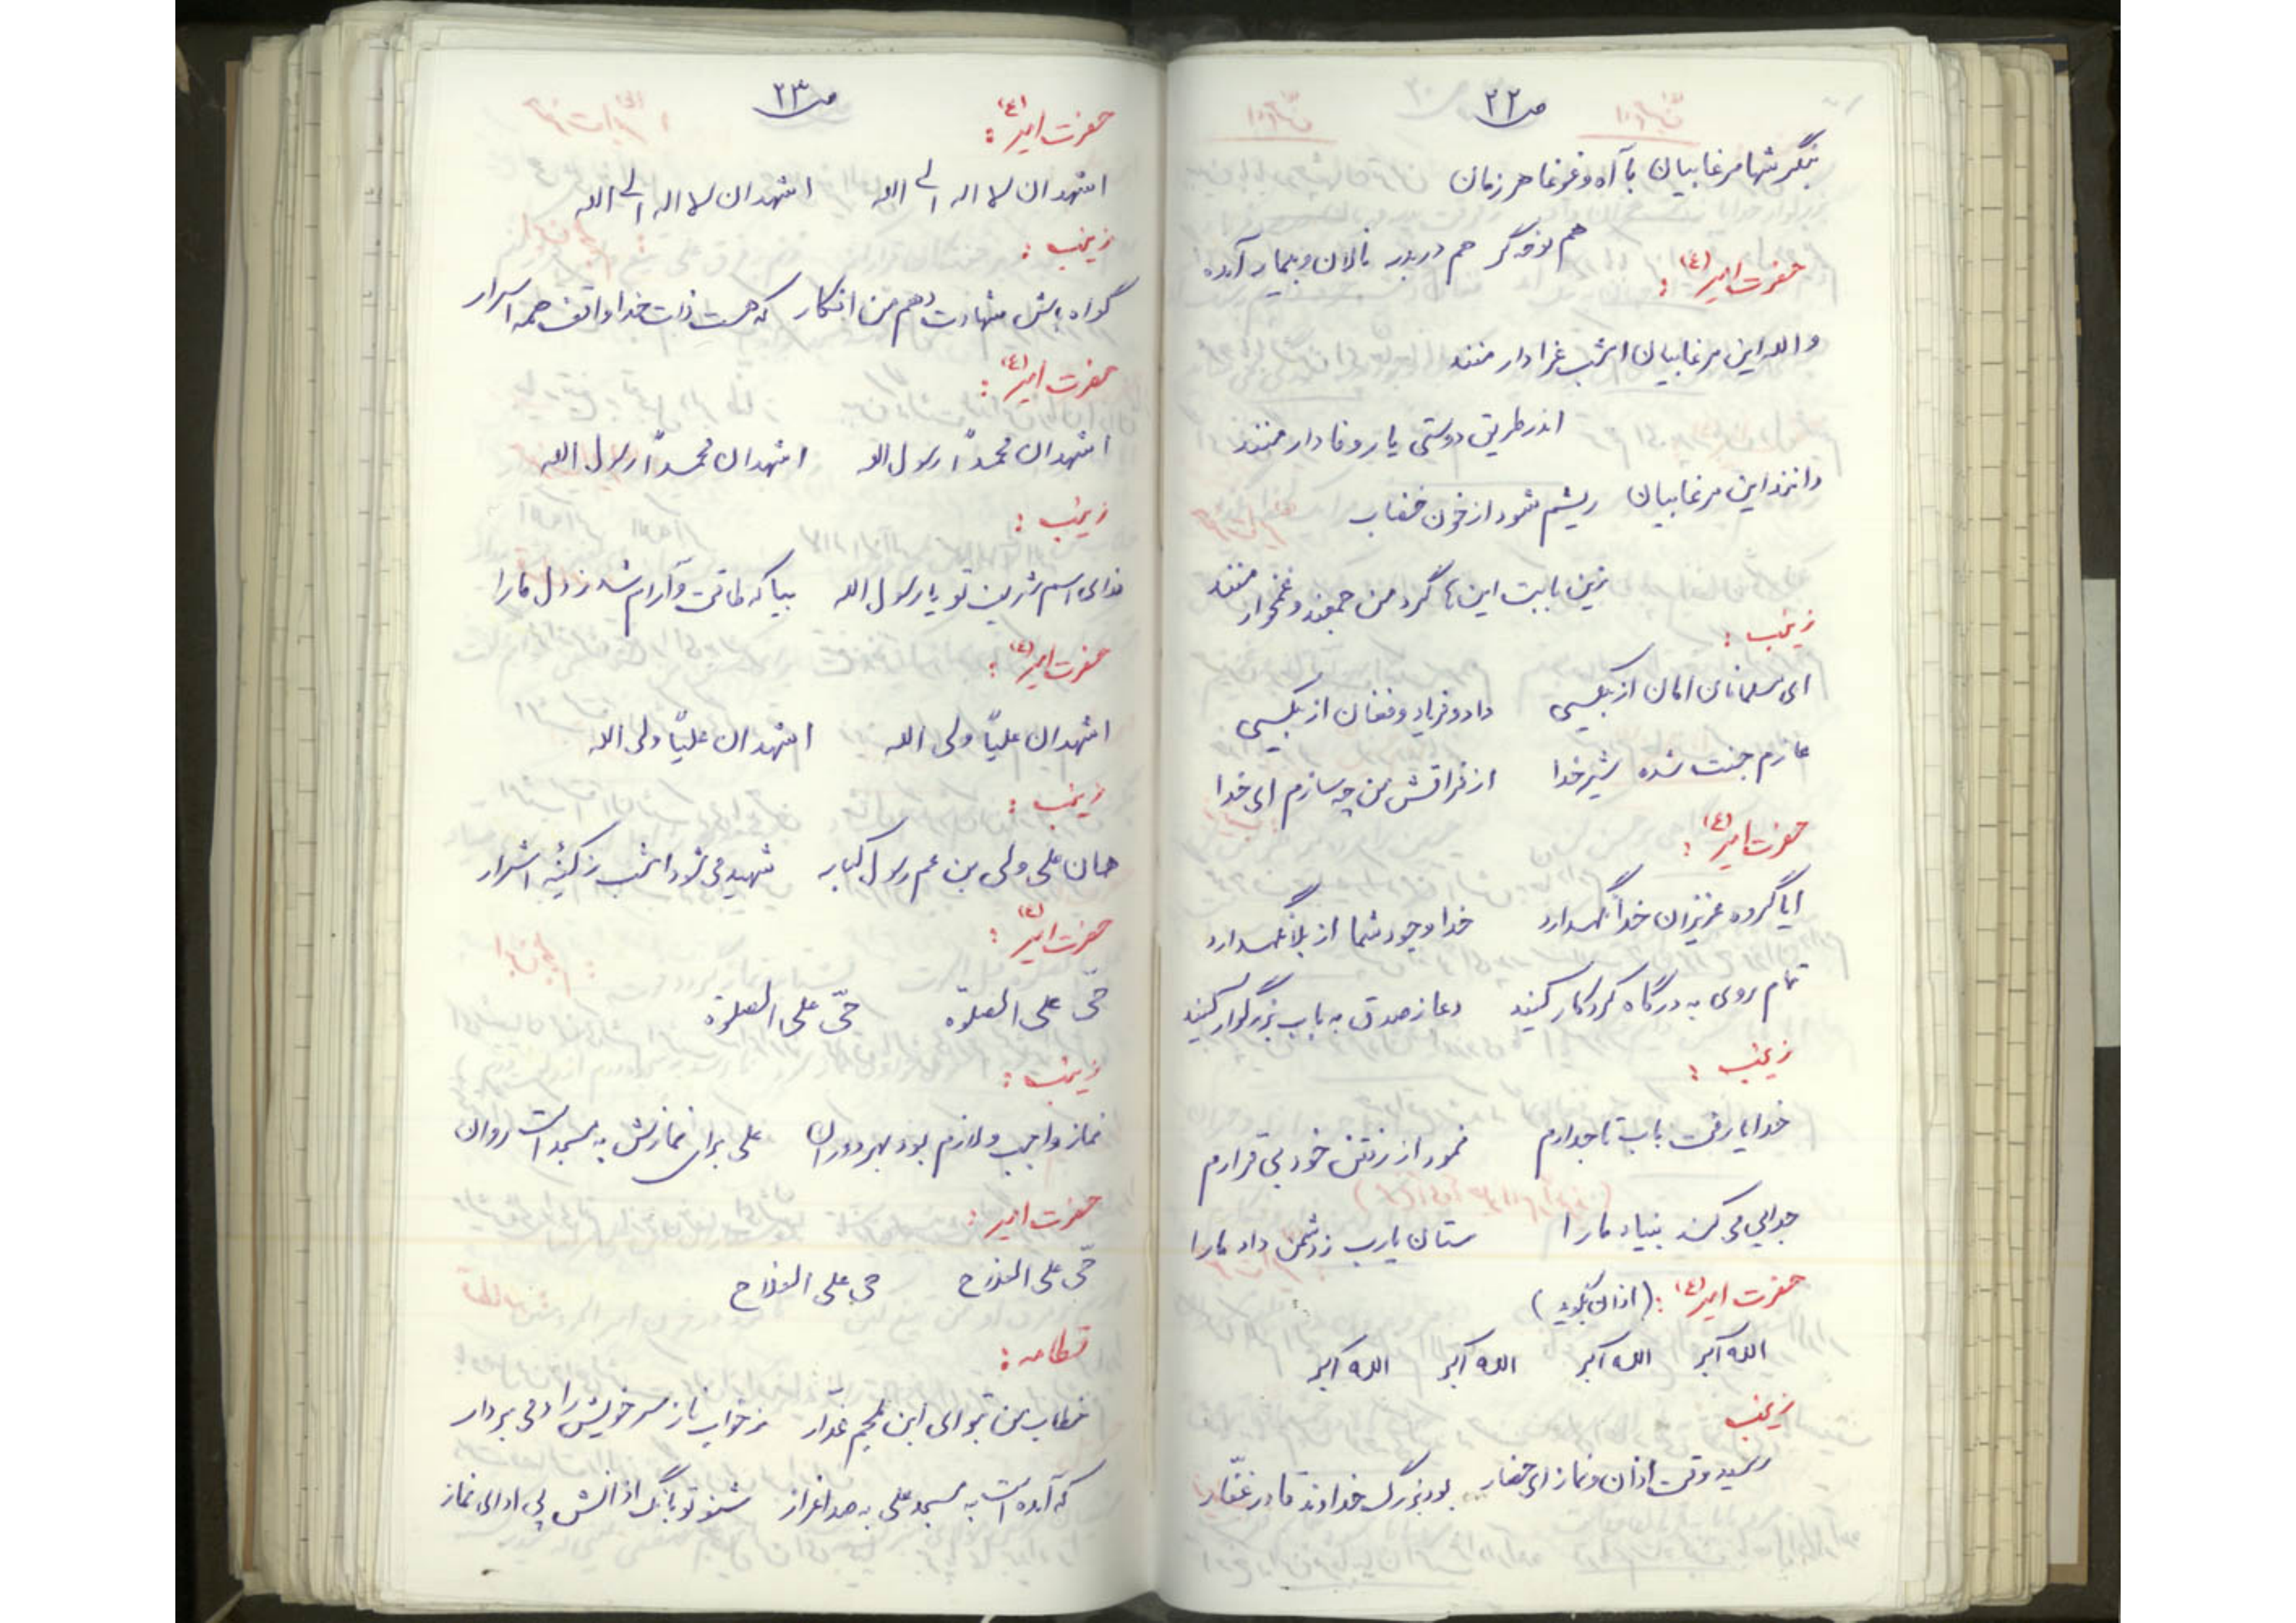 ص ۲۲
بنگر شها مرغابیان با آه و غوغا هر زمان
هم نوحه گر هم دربدر نالان و بیمار آمده
حضرت امیر (ع) :
والله این مرغابیان امشب عزادار منند
اندر طریق دوستی یار وفادار منند
دانند این مرغابیان ریشم شود از خون خضاب
زین بابت این ها گرد من جمعند و غمخوار منند
زینب :
ای مسلمانان امان از بیکسی داد و فریاد و فغان از بیکسی
عازم جنت شده شیر خدا از فراقش من چه سازم ای خدا
حضرت امیر (ع) :
ایا گروه عزیزان خدا نگهدارد خدا وجود شما از بلا نگهدارد
تمام روی به درگاه کردگار کنید دعا ز صدق به باب بزرگوار کنید
زینب :
خدایا رفت باب تاجدارم نمود از رفتن خود بی قرارم
جدایی می کند بنیاد ما را ستان یارب ز دشمن داد ما را
حضرت امیر (ع) : (اذان بگوید)
الله اکبر الله اکبر الله اکبر الله اکبر
زینب
رسید وقت اذان و نماز ای حضار بود بزرگ خداوند قادر غفّار
ص ۲۳
حضرت امیر (ع) :
اشهد ان لا اله الی الله اشهد ان لا اله الی الله
زینب :
گواه باش شهادت دهم من افکار که هست ذات خدا واقف همه اسرار
حضرت امیر (ع) :
اشهد ان محمداً رسول الله اشهد ان محمداً رسول الله
زینب :
فدای اسم شریف تو یا رسول الله بیا که طاقت و آرام شد ز دل ما را
حضرت امیر (ع) :
اشهد ان علیاً ولی الله اشهد ان علیاً ولی الله
زینب :
همان علی ولی بن عم رسول کبار شهید می شود امشب ز کینهٔ اشرار
حضرت امیر (ع) :
حیّ علی الصلوة حیّ علی الصلوة
زینب :
نماز واجب و لازم بود بهر دوران علی برای نمازش به مسجد است روان
حضرت امیر :
حیّ علی الفلاح حی علی الفلاح
قطامه :
خطاب من بتو ای ابن ملجم غدّار ز خواب ناز سر خویش را دمی بردار
که آمده است به مسجد علی به صد اعزاز شنو تو بانگ اذانش پی ادای نماز